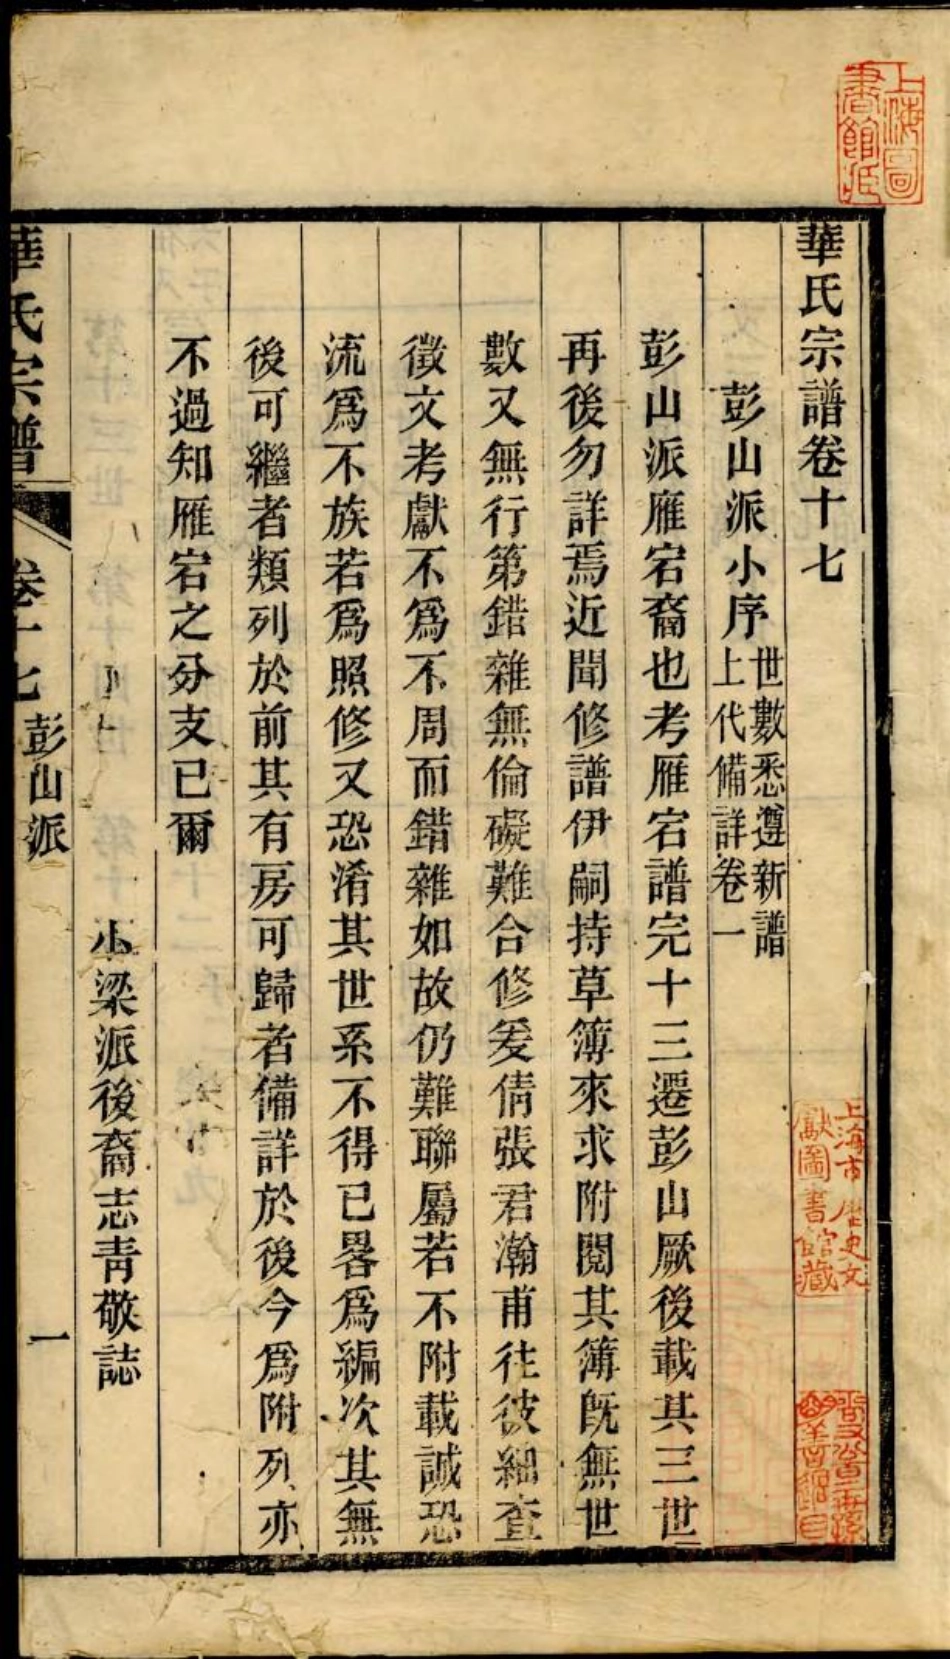 上海圖書館藏
華氏宗譜卷十七
彭山派小序世數悉遵新譜上代備詳卷一
彭山派雁宕裔也考雁宕譜完十三遷彭山厥後載其三世
再後勿詳焉近聞修譜伊嗣持草簿來求附閱其簿既無世
數又無行第錯雜無倫礙難合修爰倩張君瀚甫往彼細查
徵文考獻不爲不周而錯雜如故仍難聯屬若不附載誠恐
流爲不族若爲照修又恐淆其世系不得已畧爲編次其無
後可繼者類列於前其有房可歸者備詳於後今爲附列亦
不過知雁宕之分支已爾
小梁派後裔志青敬誌
華氏宗譜 卷十七 彭山派 一
上海市歷史文獻圖書館藏